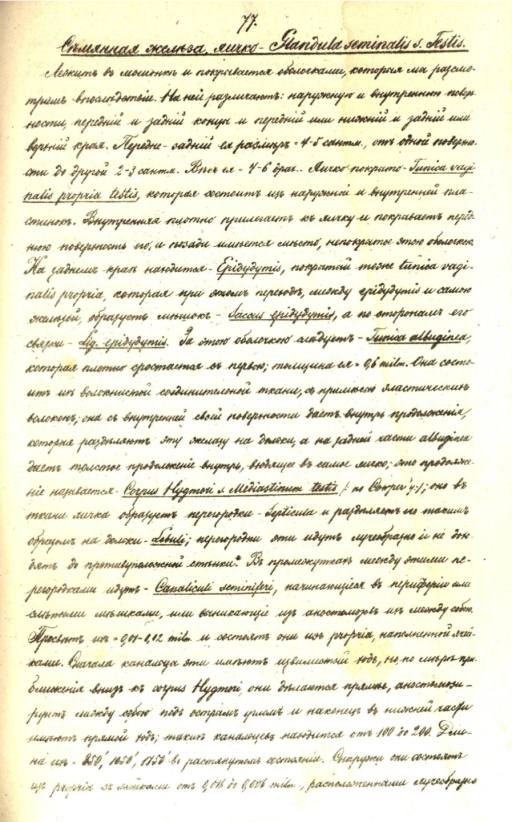 77.
Сѣмянная желѣза, яичко - Glandula seminalis s. Testis.
Лежитъ въ мошонкѣ и покрывается оболочками, которыя мы разсмо-
тримъ впослѣдствіи. На ней различаютъ: наружную и внутреннюю повер-
хности, передній и задній концы и передній или нижній и задній или
верхній края. Передне-задній ея размѣръ = 4-5 сантм., отъ одной поверхно-
сти до другой 2-3 сантм. Вѣсъ ея - 4-6 драх. Яичко покрыто - Tunica vagi-
nalis propria testis, которая состоитъ изъ наружной и внутренней пла-
стинокъ. Внутренняя плотно прилегаетъ къ яичку и покрываетъ
поверхность его, и позади имѣется мѣсто, непокрытое этою оболочкою.
На заднемъ краѣ находится - Epidydymis, покрытый тоже tunica vagi-
nalis propria, которая при этомъ переходѣ, между epidydymis и самою
желѣзой, образуетъ мѣшокъ - Saccus epidydymis, а по сторонамъ его
связки - Lig. epidydymis. За этою оболочкою слѣдуетъ - Tunica albuginea,
которая плотно сростается съ первою; толщина ея = 0,6 milm. Она состо-
итъ изъ волокнистой соединительной ткани, съ примѣсью эластическихъ
волоконъ; она съ внутренней своей поверхности даетъ внутрь продолженія,
которыя раздѣляютъ эту желѣзу на дольки, а на задней части albuginea
даетъ толстое продолженіе внутрь, входящее въ самое яичко; это продолже-
ніе называется - Corpus Hygmori s. Mediastinum testis (по Cooper'у); оно въ
ткани яичка образуетъ перегородки - Septicula и раздѣляетъ его такимъ
образомъ на дольки - Lobuli; перегородки эти идутъ лучеобразно и не до-
ходятъ до противуположной стѣнки. Въ промежуткахъ между этими пе-
регородками идутъ - Canaliculi seminiferi, начинающіеся въ периферіи или
слѣпыми мѣшками, или возникающіе изъ анастомозовъ ихъ между собою.
Просвѣтъ ихъ = 0,01-0,12 milm. и состоятъ они изъ propria, наполненной клѣт-
ками. Сначала канальцы эти имѣютъ извилистый ходъ, но, по мѣрѣ при-
ближенія внизъ къ corpus Hygmori, они дѣлаются прямѣе, анастомози-
руютъ между собою подъ острымъ угломъ и наконецъ въ нижней части
имѣютъ прямой ходъ; такихъ канальцевъ находится отъ 100 до 200. Дли-
на ихъ - 850', 1050', 1750' въ растянутомъ состояніи. Снаружи они состоятъ
изъ propria съ клѣтками отъ 0,018 до 0,006 milm., расположенными лучеобразно